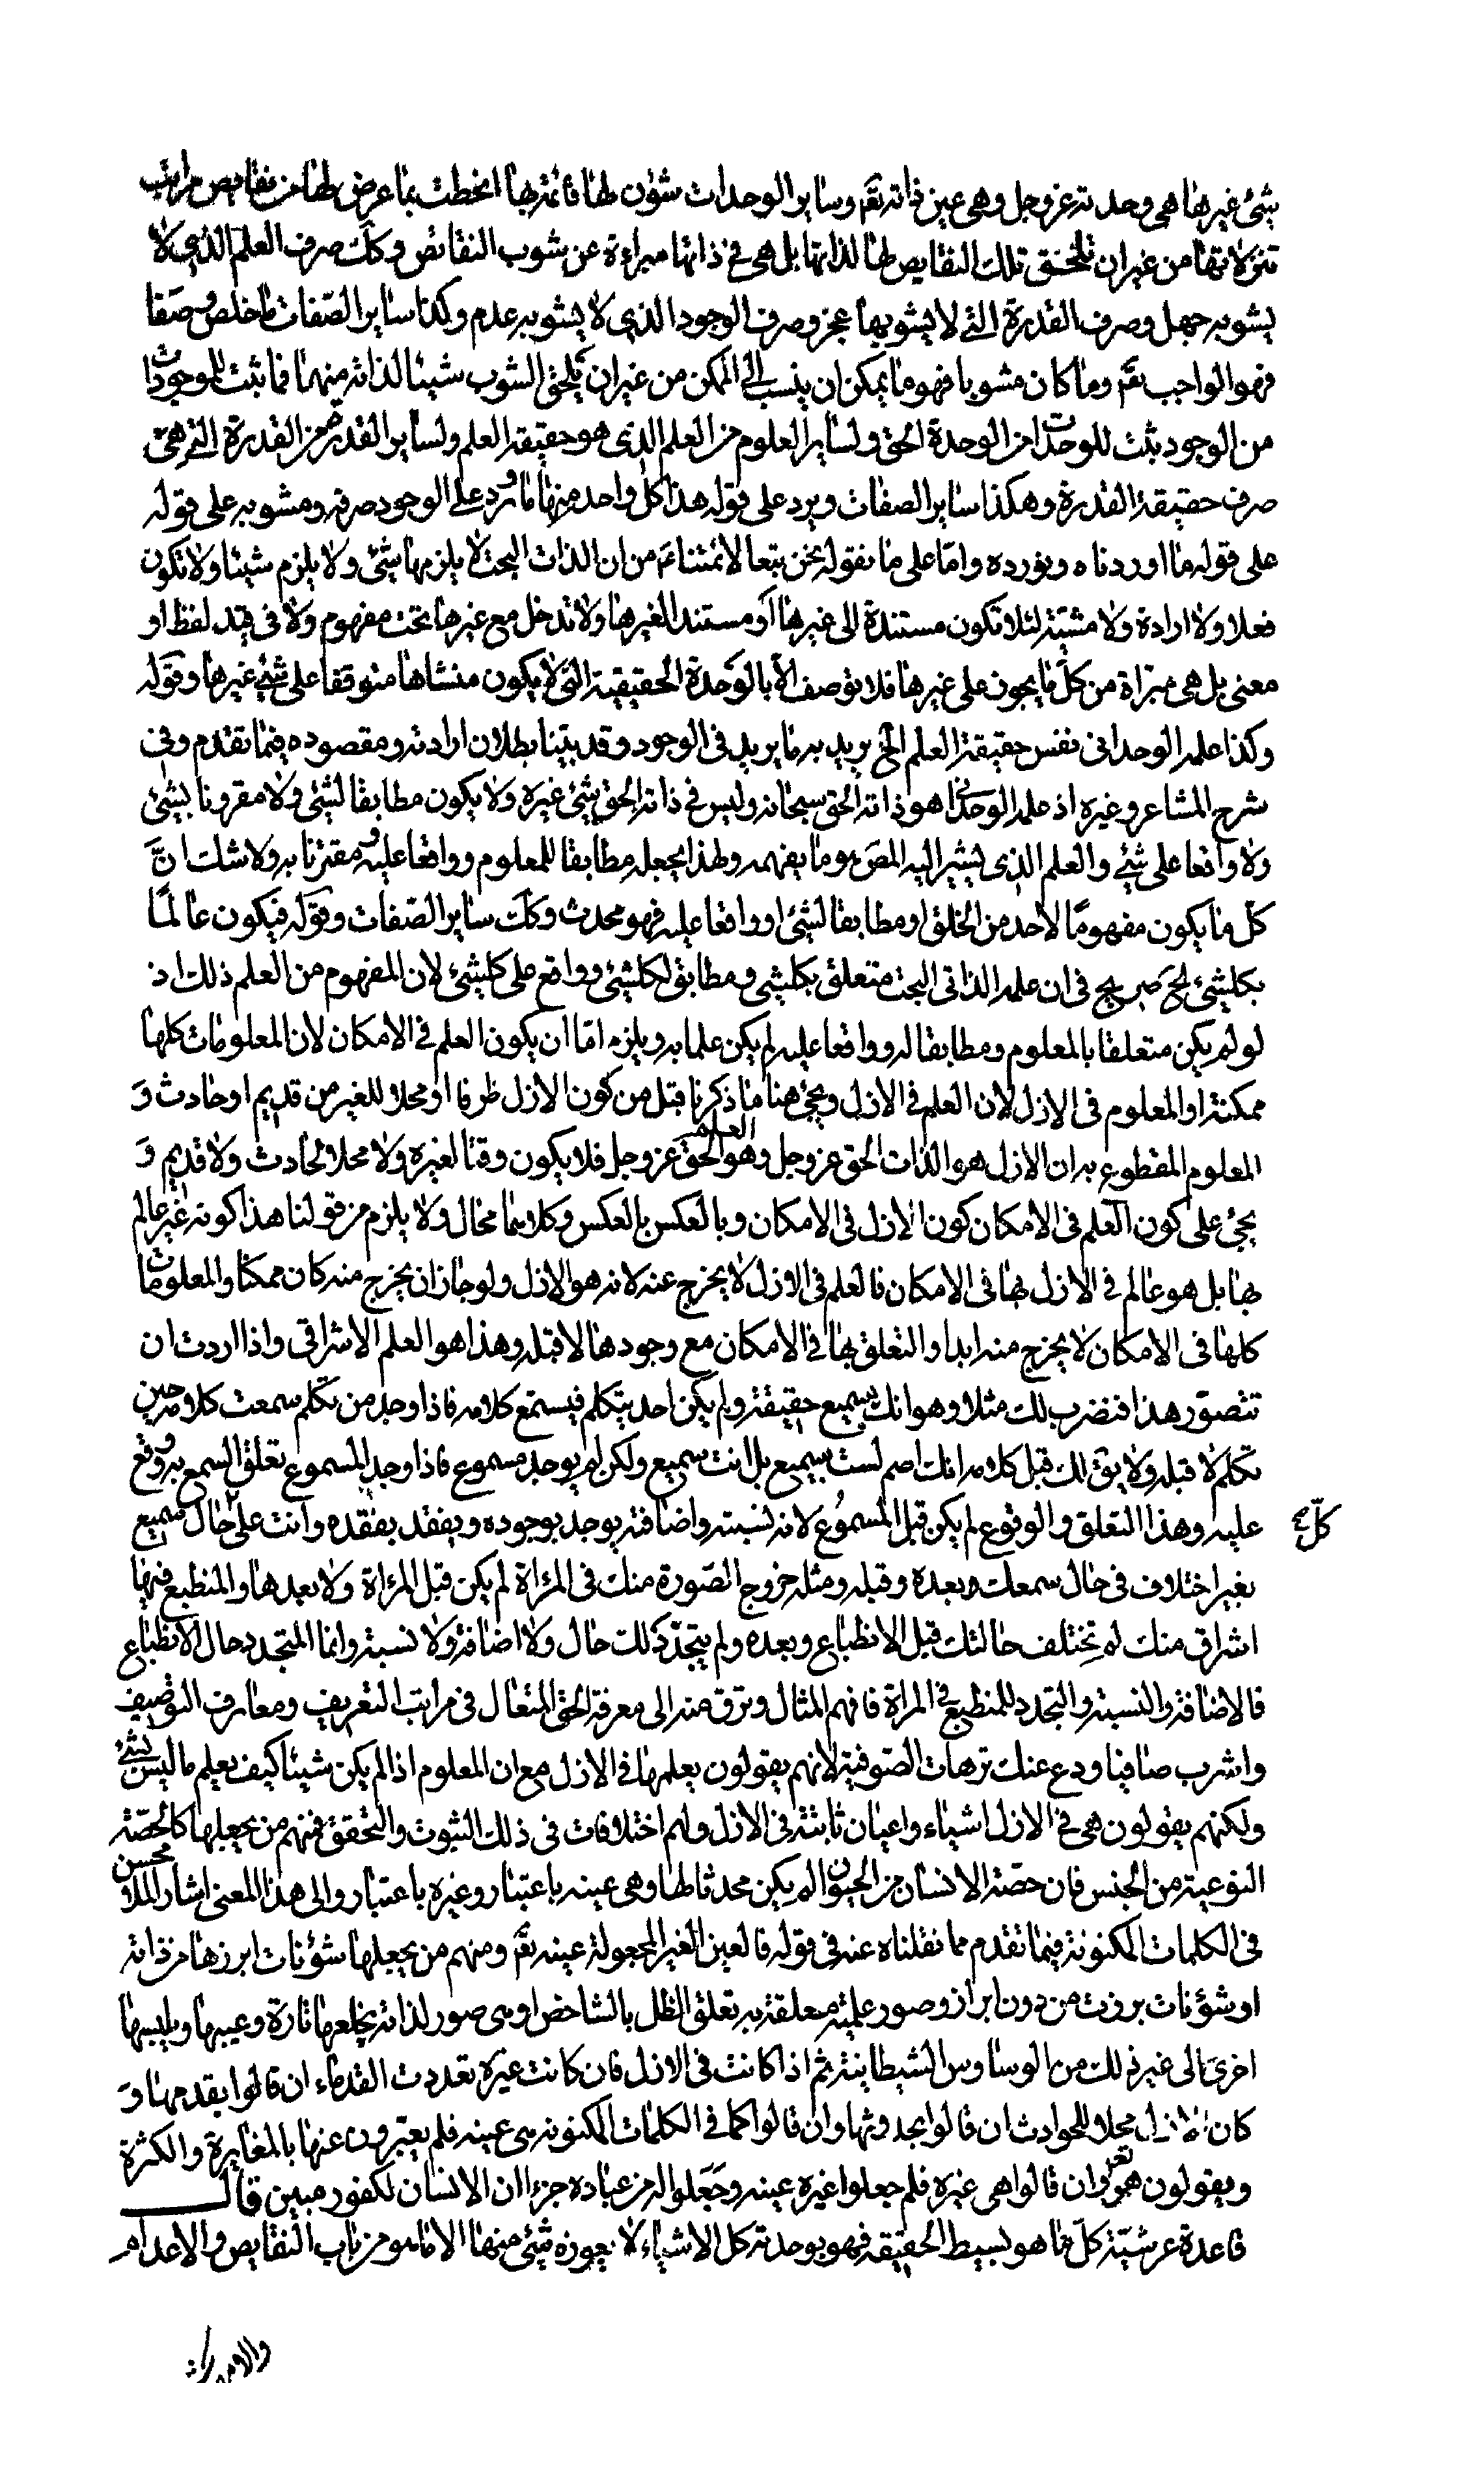 شئ غيرها هي وحدته عز وجل وهي عين ذاته تعَ وساير الوحدات شؤن لها قائمة بها انحطت بما عرض لها من نقايص مراتب
تنزلاتها من غير ان تلحق تلك النقايص لها لذاتها بل هي في ذاتها مبراءة عن شوب النقائص وكك صرف العلم الذي لا
يشوبه جهل وصرف القدرة التي لا يشوبها عجز وصرف الوجود الذي لا يشوبه عدم وكذا ساير الصّفات ما خلص وصفا
فهو الواجب تعَ وما كان مشوبا فهو ما يمكن ان ينسب الى الممكن من غير ان يلحق الشوب شيئا لذاته منهما فما يثبت للوجودات
من الوجود يثبت للوحدات من الوحدة الحق ولساير العلوم من العلم الذي هو حقيقة العلم ولساير القدر من القدرة التي هي
صرف حقيقة القدرة وهكذا ساير الصفات ويرد على قوله هذا كل واحد منها ما ورد على الوجود صرفه ومشوبه على قوله
على قوله ما اوردناه ونورده وامّا على ما نقوله نحن تبعا لائمتناءَ من ان الذات البحت لا يلزمها شئ ولا يلزم شيئا ولا تكون
فعلا ولا ارادة ولا مشيّة لئلا تكون مستندة الى غيرها او مستندا لغيرها ولا تدخل مع غيرها تحت مفهوم ولا في قيد لفظ او
معنى بل هي مبرّاة من كلّ ما يجوز على غيرها فلا توصف الاّ بالوحدة الحقيقية التي لا يكون منشاها متوقفا على شئ غيرها وقوله
وكذا علمه الوحداني نفس حقيقة العلم الخ يريد به ما يريد في الوجود وقد بيّنا بطلان ارادته ومقصوده فيما تقدم وفي
شرح المشاعر وغيره اذ علمه الوحداني هو ذاته الحق سبحانه وليس في ذاته الحق شئ غيره ولا يكون مطابقا لشئ ولا مقرونا بشئ
ولا واقعا على شئ والعلم الذي يشير اليه المصَ هو ما يفهمه ولهذا يجعله مطابقا للمعلوم وواقعا عليه ومقترنا به ولا شك انّ
كلّ ما يكون مفهومًا لاحد من الخلق او مطابقا لشئ او واقعا عليه فهو محدث وكك ساير الصّفات وقوله فيكون عالمًا
بكلشئ الخ صريح في ان علمه الذاتي البحت متعلق بكلشئ ومطابق لكلشئ وواقع على كلشئ لان المفهوم من العلم ذلك اذ
لو لم يكن متعلقا بالمعلوم ومطابقا له وواقعا عليه لم يكن علما به ويلزم امّا ان يكون العلم في الامكان لان المعلومات كلها
ممكنة او المعلوم في الازل لان العلم في الازل ويجئ هنا ما ذكرنا قبل من كون الازل ظرفا او محلا للغير من قديم او حادث وَ
المعلوم المقطوع به ان الازل هو الذات الحق عز وجل وهو العلم الحق عز وجل فلا يكون وقتا لغيره ولا محلا لحادث ولا قديم وَ
يجئ على كون العلم في الامكان كون الازل في الامكان وبالعكس بالعكس وكلاهما محال ولا يلزم من قولنا هذا كونه غير عالم
بها بل هو عالم في الازل بها في الامكان فالعلم في الازل لا يخرج عنه لانه هو الازل ولو جاز ان يخرج منه كان ممكنا والمعلومات
كلها في الامكان لا يخرج منه ابدا والتعلق بها في الامكان مع وجودها لا قبله وهذا هو العلم الاشراقي واذا اردت ان
تتصوّر هذا فنضرب لك مثلا وهو انك سميع حقيقة ولم يكن احد يتكلم فيستمع كلامه فاذا وجد من تكلم سمعت كلامه حين
تكلم لا قبله ولا يقَ لك قبل كلامه انك اصم لست بسميع بل انت سميع ولكن لم يوجد مسموع فاذا وجد المسموع تعلق السمع به ووقع
عليه وهذا التعلق والوقوع لم يكن قبل المسموع لانه نسبته واضافته يوجد بوجوده ويفقد بفقده وانت على كلّ حال سميع
بغير اختلاف في حال سمعك وبعده وقبله ومثله خروج الصّورة منك في المراة لم يكن قبل المرءاة ولا بعدها والمنطبع فيها
اشراق منك لم تختلف حالتك قبل الانطباع وبعده ولم يتجدّد لك حال ولا اضافة ولا نسبة وانما المتجدد حال الانطباع
فالاضافة والنسبة والتجدد للمنطبع في المراة فافهم المثال وترق منه الى معرفة الحق المتعال في مراتب التعريف ومعارف التوصيف
واشرب صافيا ودع عنك ترهات الصّوفية لانهم يقولون يعلمها في الازل مع ان المعلوم اذا لم يكن شيئا كيف يعلم ما ليس بشئ
ولكنهم يقولون هي في الازل اشياء واعيان ثابتة في الازل ولهم اختلافات في ذلك الثبوت والتحقق فمنهم من يجعلها كالحصّة
النوعية من الجنس فان حصّة الانسان من الحيوان لم يكن محدثا لها وهي عينه باعتبار وغيره باعتبار والى هذا المعنى اشار الملا محسن
في الكلمات المكنونة فيما تقدم مما نقلناه عنه في قوله فالعين الغير المجعولة عينه تعَ ومنهم من يجعلها شؤنات ابرزها من ذاته
او شؤنات برزت من دون ابراز وصور علمية معلقة به تعلق الظل بالشاخص او هي صور لذاته يخلعها تارة وعيبها ويلبسها
اخرى الى غير ذلك من الوساوس الشيطانية ثم اذا كانت في الازل فان كانت غيره تعددت القدماء ان قالوا بقدمها وَ
كان الازل محلا للحوادث ان قالوا بحدوثها وان قالوا كما في الكلمات المكنونة هي عينه فلم يعبّرون عنها بالمغايرة والكثرة
ويقولون هو تعَ وان قالوا هي غيره فلم جعلوا غيره عينه وجَعَلوا له من عباده جزءا ان الانسان لكفور مبين قال
قاعدة عرشيّة كلّ ما هو بسيط الحقيقة فهو بوحدته كل الاشياء لا يعوزه شئ منها الا ما هو من باب النقايص والاعدام